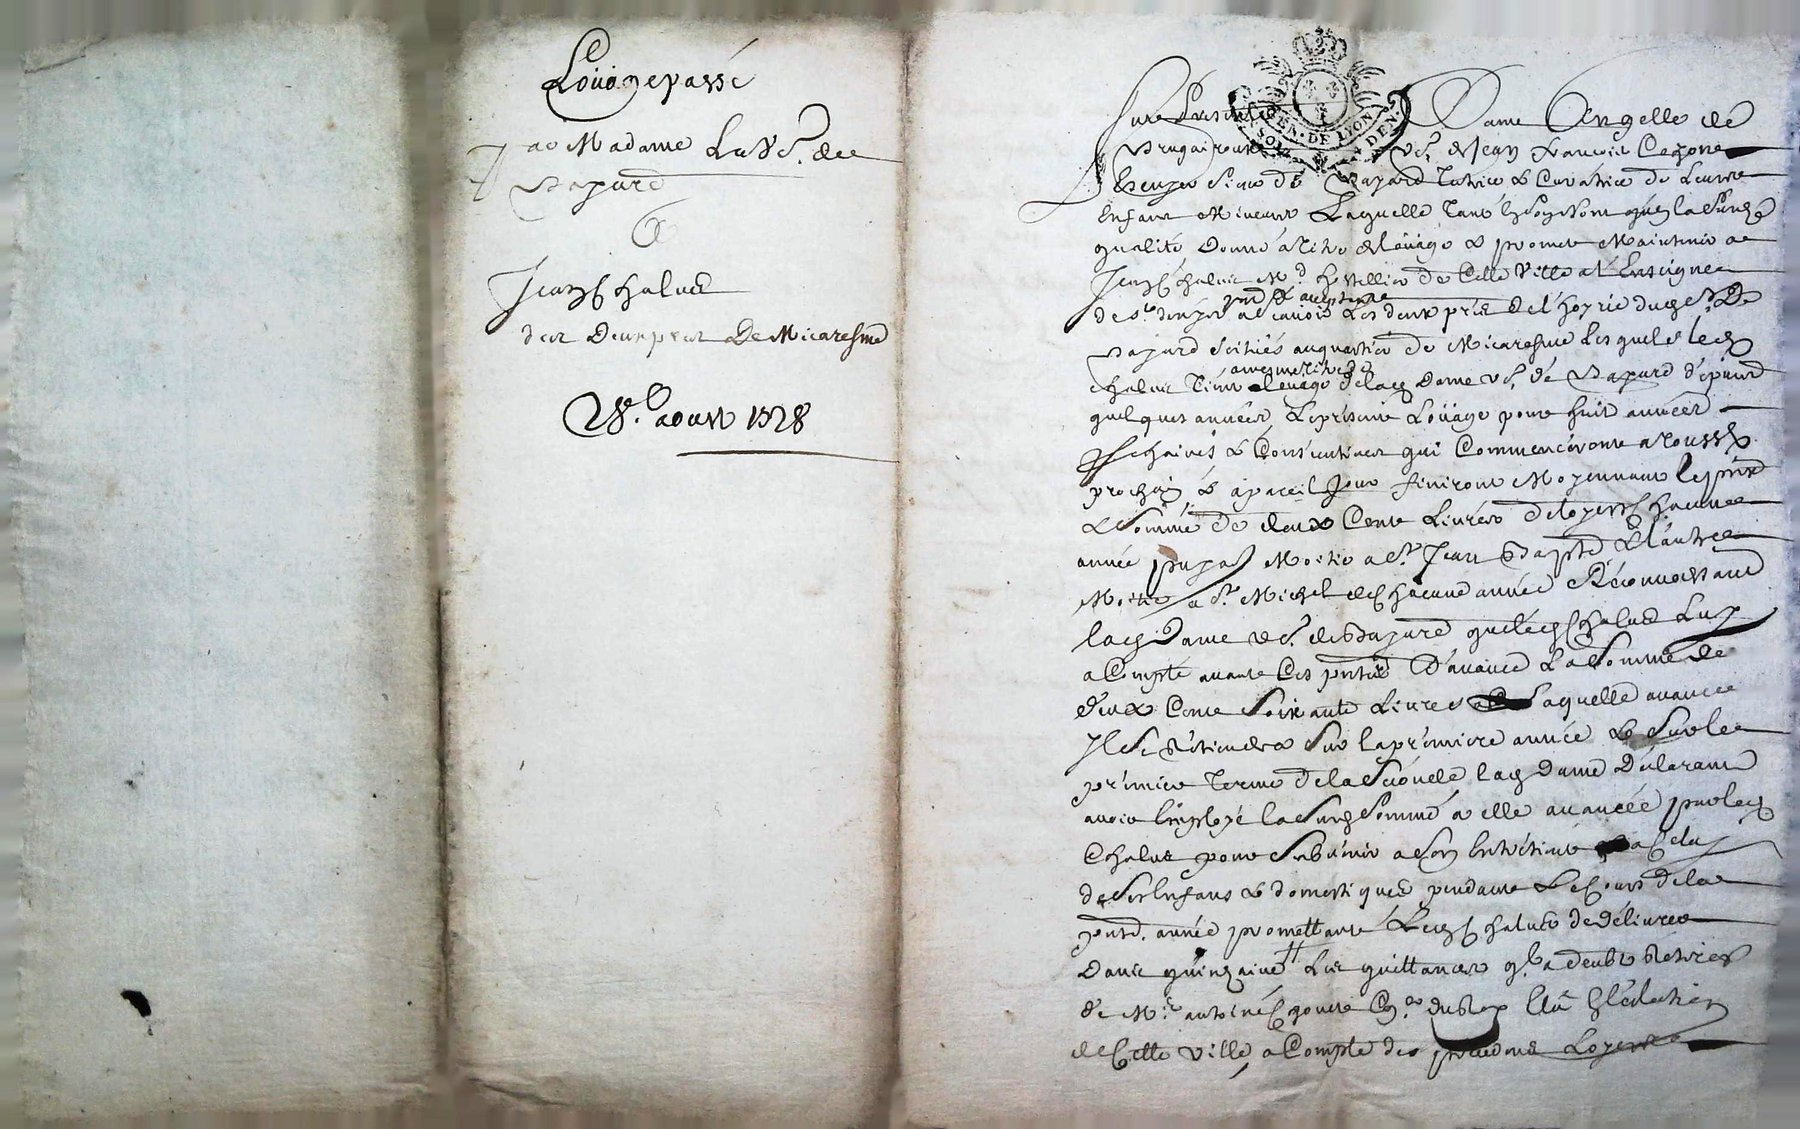 Loüage passé
Madame La Vē. de
Bayard
&
Jean Chalus
des deux prez De Micaresme
28.e aoust 1728
GEN. DE LYON
Dame Angelle de
Vē. de Jean francois
de Bayard Tutrice & Curatrice de Leurs
Enfans Mineurs Laquelle Tant En Son Nom qu'en la Susd.
qualité Donne a titre de loüage & promet Maintenir a
Jean Chalus M.d hostellier de Cette Ville a L'Enseigne
les deux prés de l'hoyrie dud. S.r De
Bayard Scitués au quartier de Micaresme Lesquels led.
Chalus Tient de lad. Dame vē. de Bayard depuis
quelques années, Le present Loüage pour huit années
& Consecutives qui Commenceront a
prochain & a pareil Jour finiront Moyennant le prix
& Somme de deux Cents Livres de loyer Chacune
année Moitié a S.t Jean Baptē & l'autre
Moitié a S.t Michel de Chacune année Reconnoissant
lad. Dame vē. de Bayard que led. Chalus Luy
a Compté avant Ces pntes D'avance La Somme de
deux Cents Soixante Livres Laquelle avance
Il Se Retiendra Sur la premiere année & Sur le
premier Terme de la Seconde lad. Dame Declarant
avoir Employé la Susd. Somme a elle avancée par led.
Chalus pour Subvenir a Son Entretient a Celuy
de Ses Enfans & domestiques pendant Le Cours de la
pntē. année promettant Led. Chalus de delivrer
Dans quinzaine Les quittances
de M.r antoine
de Cette Ville, a Compte des Loyers